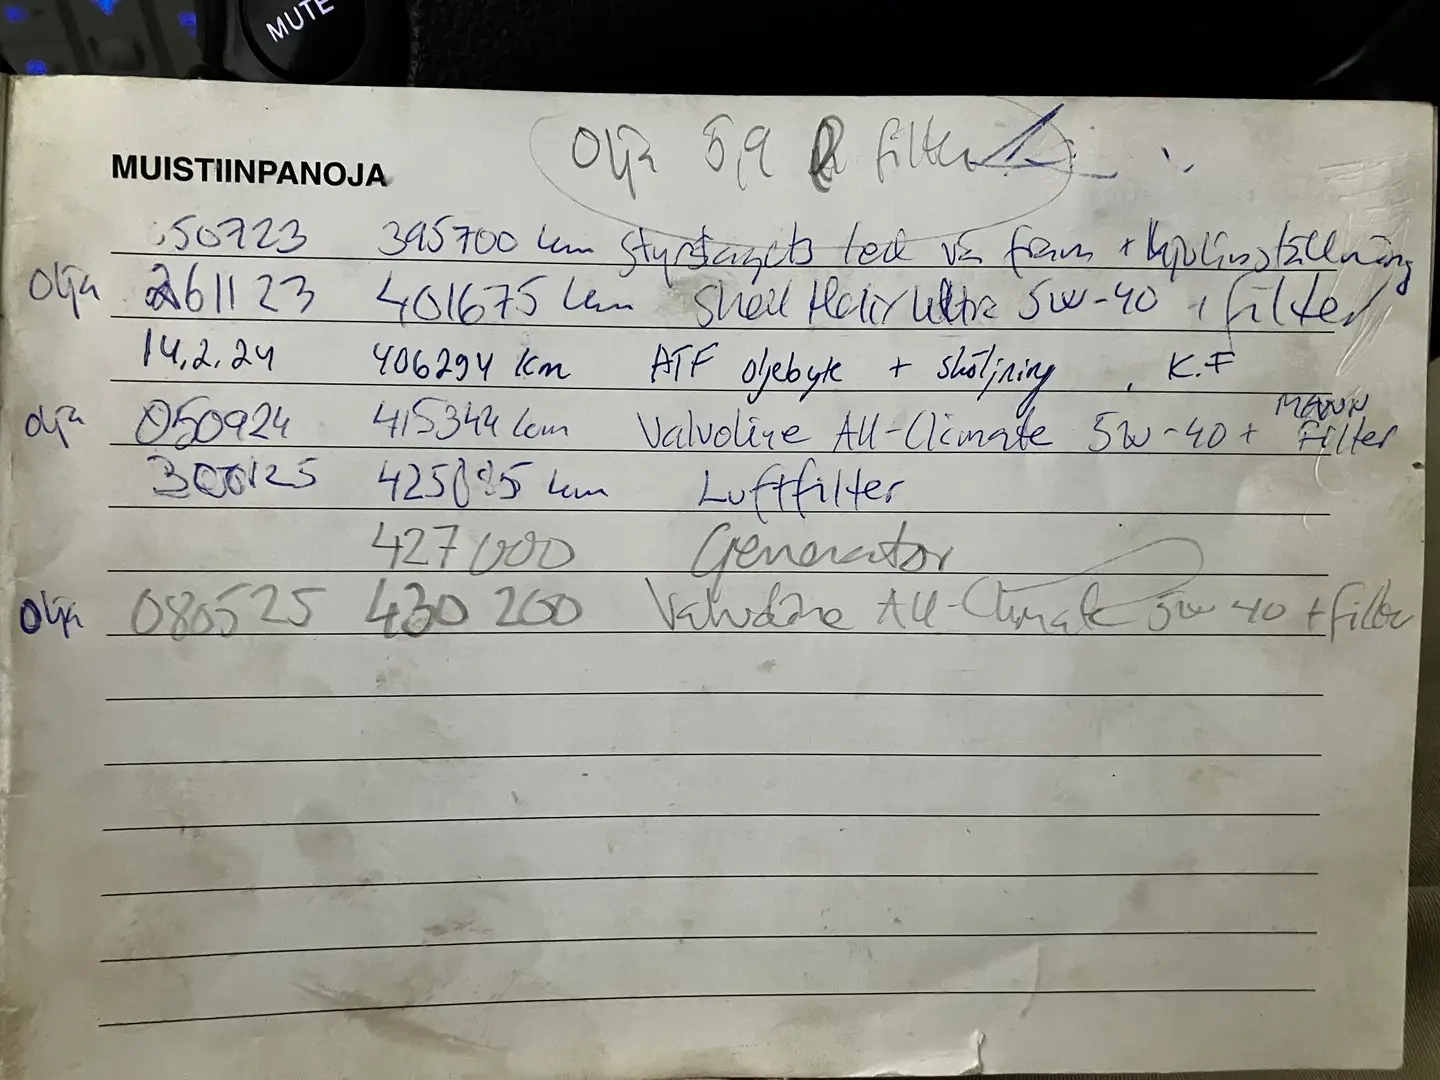 MUTE
Olja 5,9 l filter
MUISTIINPANOJA
050723 395700 km styrstagets led vä fram + hjulinställning
Olja 261123 401675 km Shell Helix Ultra 5w-40 + filter
14.2.24 406294 km ATF oljebyte + sköljning K.F
olja 050924 415344 km Valvoline All-Climate 5w-40 + MANN Filter
425 km Luftfilter
427000 Generator
Olja 080525 430 200 Valvoline All-Climate 5w 40 + filter